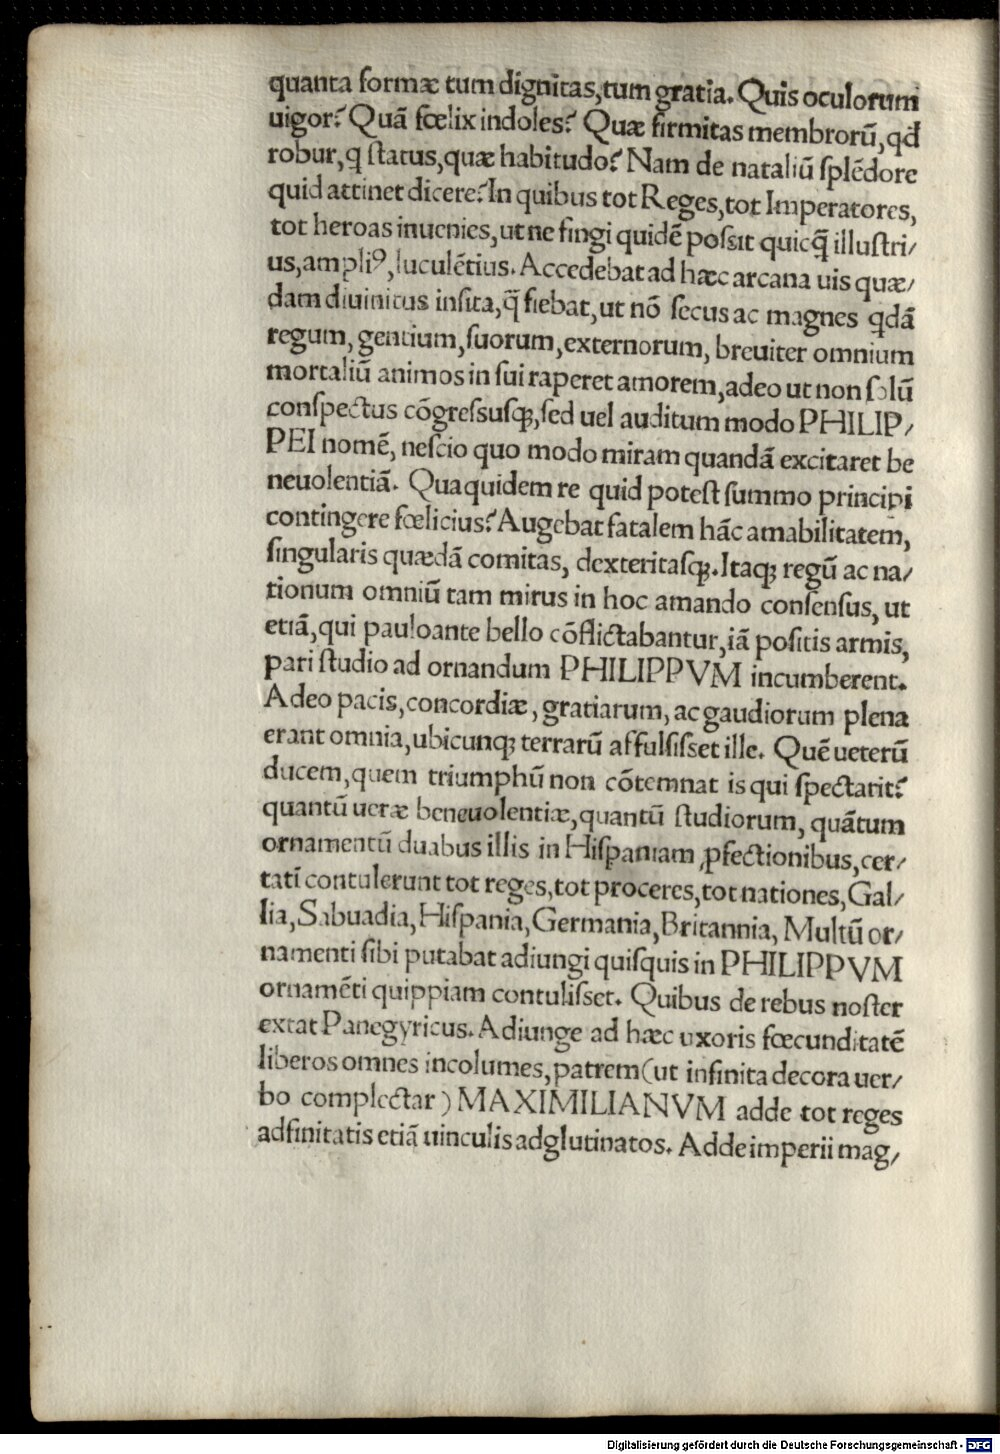 quanta formæ tum dignitas,tum gratia. Quis oculorum
uigor? Quã fœlix indoles? Quæ firmitas membrorũ,qd
robur,q̃ status,quæ habitudo? Nam de nataliũ splẽdore
quid attinet dicere? In quibus tot Reges,tot Imperatores,
tot heroas inuenies,ut ne fingi quidẽ possit quicq̃ illustri/
us,ampliꝰ,luculẽtius. Accedebat ad hæc arcana uis quæ/
dam diuinitus insita,q̃ fiebat,ut nõ secus ac magnes qdã
regum, gentium,suorum,externorum, breuiter omnium
mortaliũ animos in sui raperet amorem,adeo ut non solũ
conspectus cõgressusqꝫ,sed uel auditum modo PHILIP/
PEI nomẽ, nescio quo modo miram quandã excitaret be
neuolentiã. Qua quidem re quid potest summo principi
contingere fœlicius? Augebat fatalem hãc amabilitatem,
singularis quædã comitas, dexteritasqꝫ. Itaqꝫ regũ ac na/
tionum omniũ tam mirus in hoc amando consensus, ut
etiã,qui pauloante bello cõflictabantur,iã positis armis,
pari studio ad ornandum PHILIPPVM incumberent.
Adeo pacis,concordiæ, gratiarum, ac gaudiorum plena
erant omnia,ubicunqꝫ terrarũ affulsisset ille. Quẽ ueterũ
ducem,quem triumphũ non cõtemnat is qui spectarit?
quantũ ueræ beneuolentiæ,quantũ studiorum, quãtum
ornamentũ duabus illis in Hispaniam ꝓfectionibus,cer/
tati contulerunt tot reges,tot proceres,tot nationes,Gal/
lia,Sabuadia,Hispania,Germania,Britannia, Multũ or/
namenti sibi putabat adiungi quisquis in PHILIPPVM
ornamẽti quippiam contulisset. Quibus de rebus noster
extat Panegyricus. Adiunge ad hæc uxoris fœcunditatẽ
liberos omnes incolumes,patrem(ut infinita decora uer/
bo complectar) MAXIMILIANVM adde tot reges
adfinitatis etiã uinculis adglutinatos. Adde imperii mag/
Digitalisierung gefördert durch die Deutsche Forschungsgemeinschaft - DFG